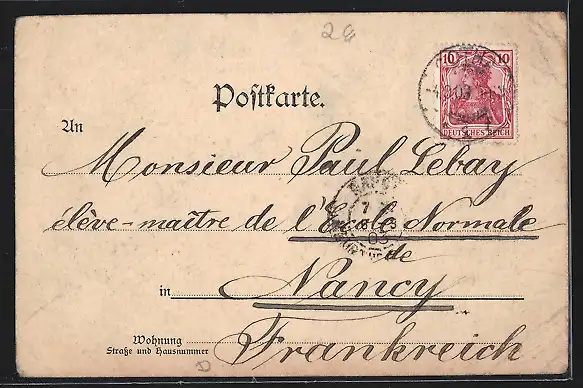 2
10 10
DEUTSCHES REICH
Postkarte.
An
Monsieur Paul Lebay
élève-maître de l'Ecole Normale
de
in Nancy
Wohnung
Straße und Hausnummer
Frankreich
NANCY
7
03